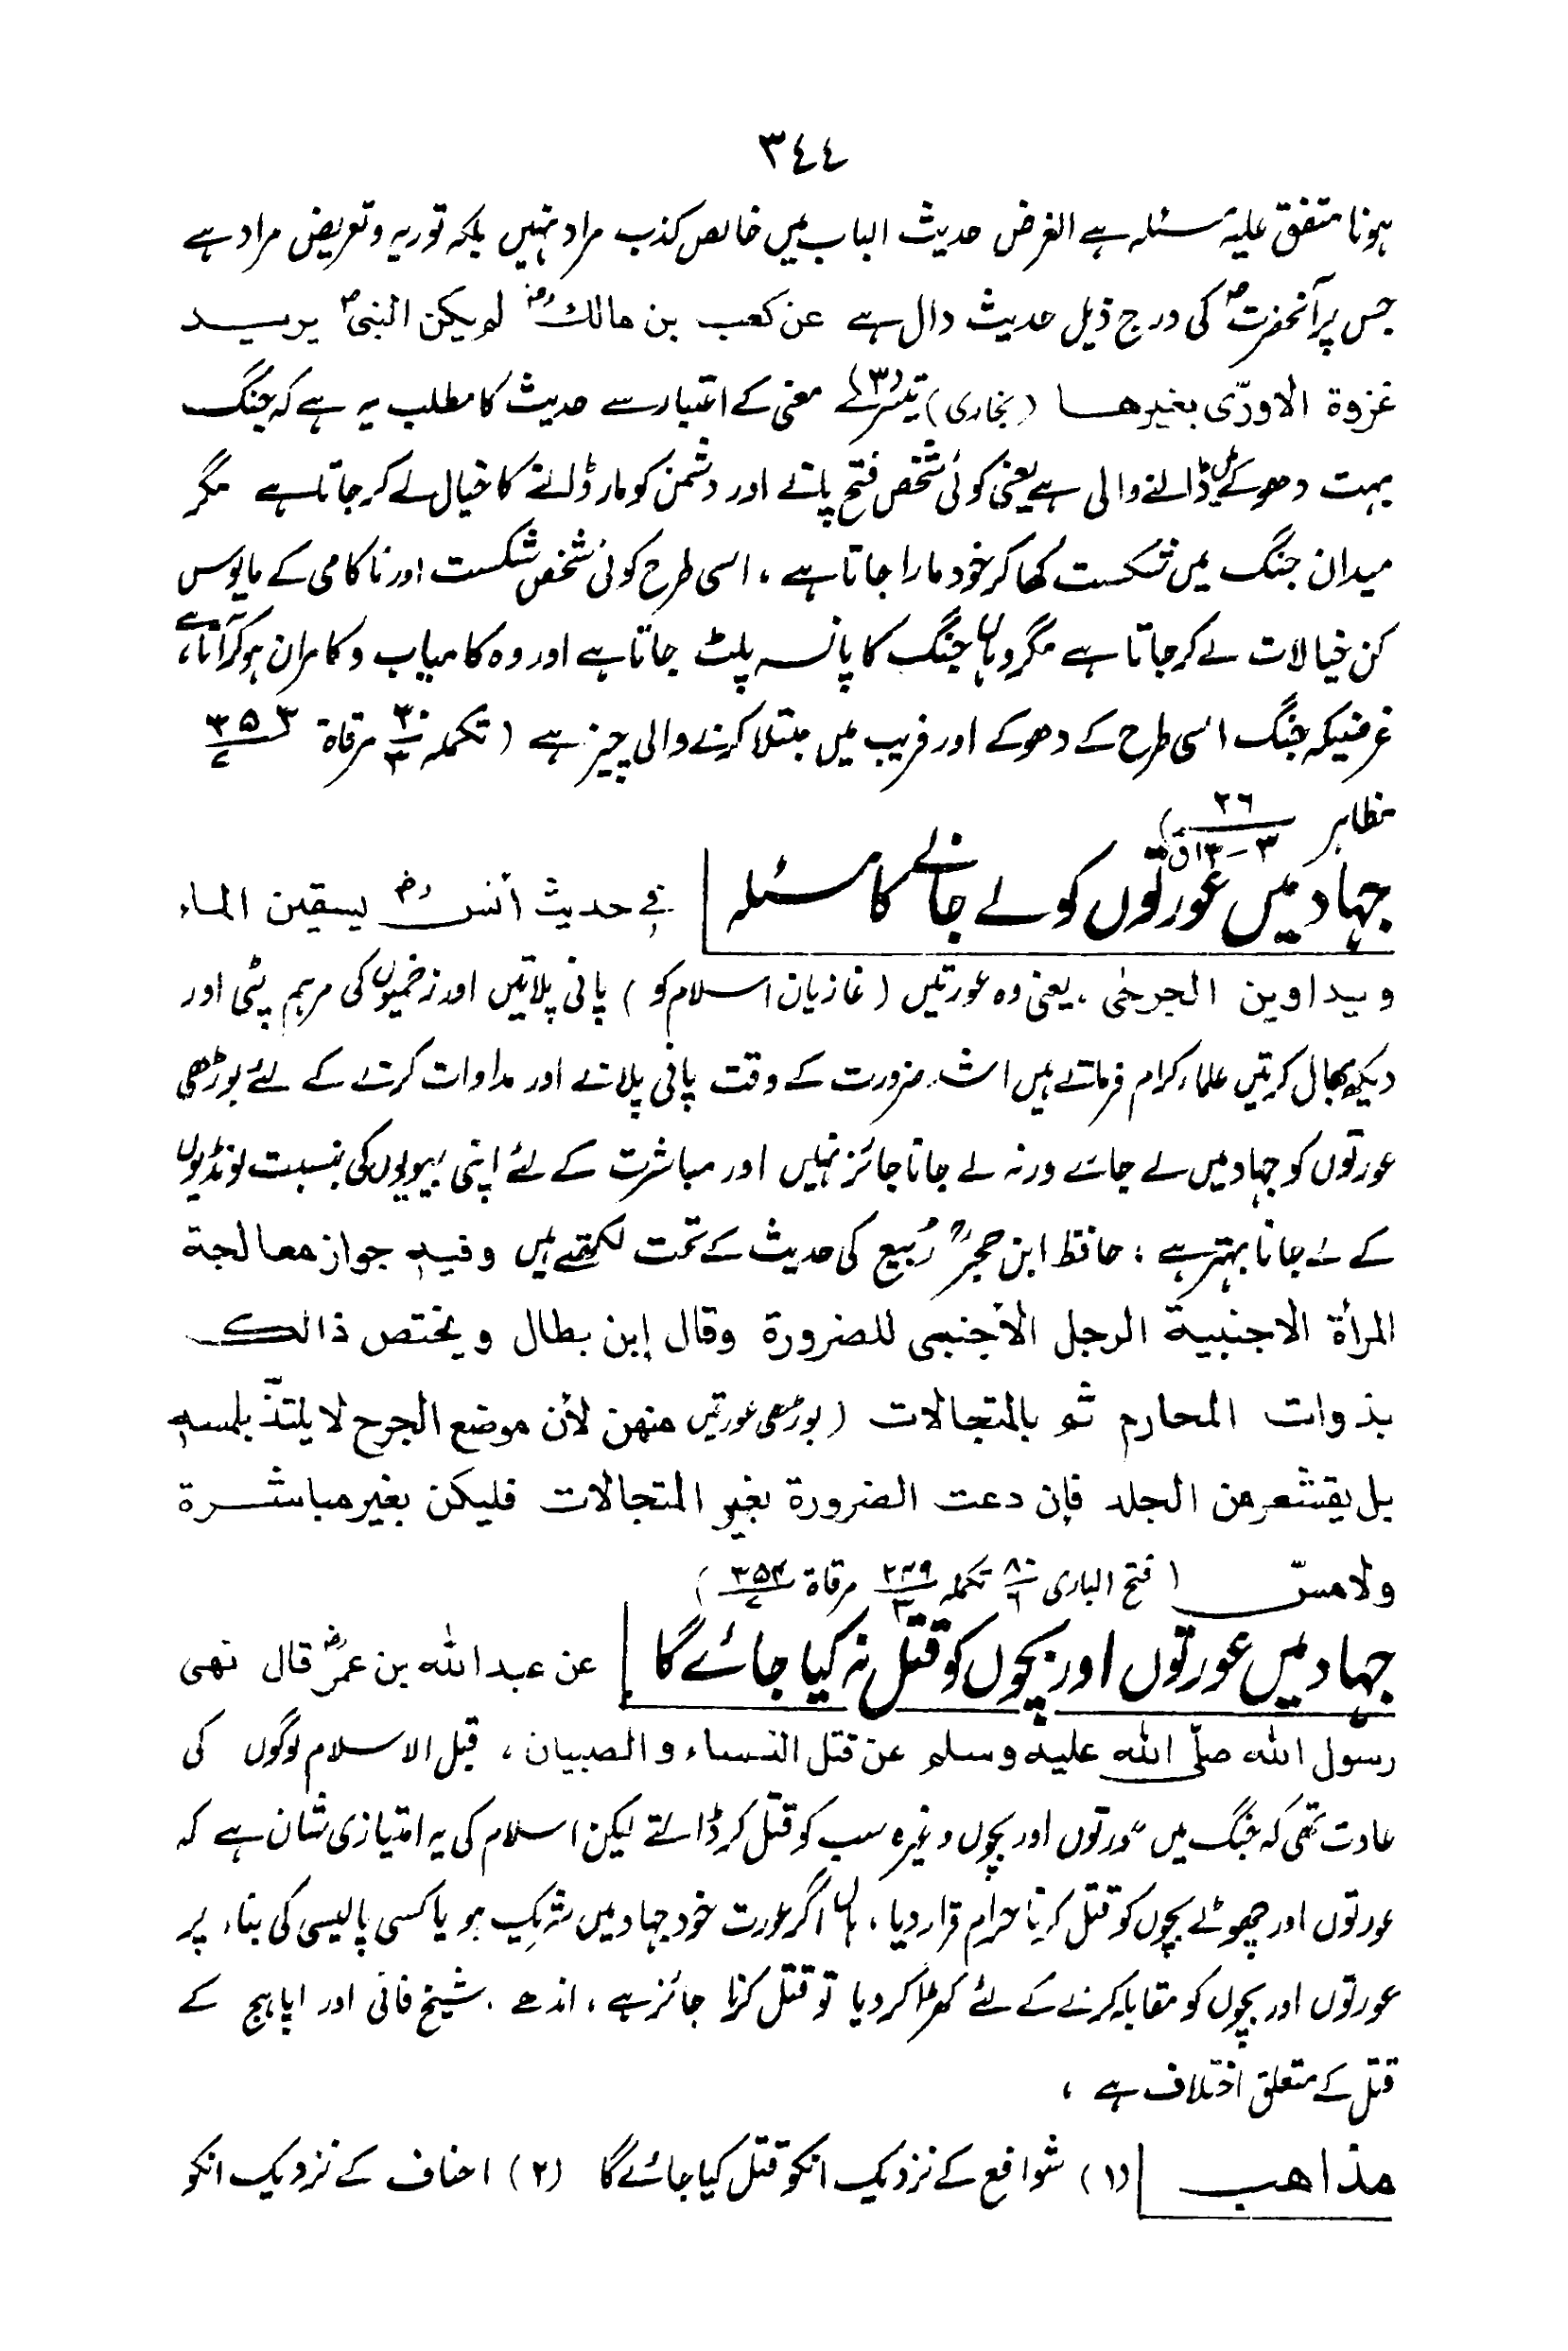 ٣٤٤
ہونا متفق علیہ مسئلہ ہے الغرض حدیث الباب میں خالص کذب مراد نہیں بلکہ توریہ وتعریض مراد ہے
جس پر آنحضرتؐ کی درج ذیل حدیث دال ہے عن کعب بن مالکؓ لم یکن النبیؐ یریــد
غزوة الاورّی بغیرھــا (بخاری) (۳) تیسرے معنی کے اعتبار سے حدیث کا مطلب یہ ہے کہ جنگ
بہت دھوکے میں ڈالنے والی ہے یعنی کوئی شخص فتح پانے اور دشمن کو مار ڈالنے کا خیال لے کر جاتا ہے مگر
میدان جنگ میں شکست کھا کر خود مارا جاتا ہے ، اسی طرح کوئی شخص شکست اور ناکامی کے مایوس
کن خیالات لے کر جاتا ہے مگر وہاں جنگ کا پانسہ پلٹ جاتا ہے اور وہ کامیاب و کامران ہو کر آتا ہے ،
غرضیکہ جنگ اسی طرح کے دھوکے اور فریب میں مبتلا کرنے والی چیز ہے ( تکملہ ۳۰/۳ مرقاة ۳۵۳/۷
مظاہر ۲۶/۳-
جہاد میں عورتوں کو لے جانے کا مسئلہ | فی حدیث أنسؓ یسقین الماء
ویداوین الجرحٰی ، یعنی وہ عورتیں ( غازیان اسلام کو ) پانی پلاتیں اور زخمیوں کی مرہم پٹی اور
دیکھ بھال کرتیں علماء کرام فرماتے ہیں اشد ضرورت کے وقت پانی پلانے اور مداوات کرنے کے لئے بوڑھی
عورتوں کو جہاد میں لے جائے ورنہ لے جانا جائز نہیں اور مباشرت کے لئے اپنی بیویوں کی بنسبت لونڈیوں
کے لے جانا بہتر ہے ؛ حافظ ابن حجرؒ رُبیع کی حدیث کے تحت لکھتے ہیں وفیہ جواز معالجة
المرأة الاجنبیة الرجل الأجنبی للضرورة وقال إبن بطال ویختص ذالک
بذوات المحارم ثم بالمتجالات ( بوڑھی عورتیں منهن لأن موضع الجرح لا یلتذّ بلمسه
بل یقشعر من الجلد فإن دعت الضرورة بغیر المتجالات فلیکن بغیر مباشــرة
ولا مسّ ( فتح الباری ۸۰/۶ تکملہ ۲۳۹/۳ مرقاة ۳۵۴/۷ )
جہاد میں عورتوں اور بچوں کو قتل نہ کیا جائے گا | عن عبد الله بن عمرؓ قال نھی
رسول الله صلّی الله علیه وسلم عن قتل النساء والصبیان ، قبل الاسلام لوگوں کی
عادت تھی کہ جنگ میں عورتوں اور بچوں وغیرہ سب کو قتل کر ڈالتے لیکن اسلام کی یہ امتیازی شان ہے کہ
عورتوں اور چھوٹے بچوں کو قتل کرنا حرام قرار دیا ، ہاں اگر عورت خود جہاد میں شریک ہو یا کسی پالیسی کی بناء پر
عورتوں اور بچوں کو مقابلہ کرنے کے لئے کھڑا کردیا تو قتل کرنا جائز ہے ، اندھے ، شیخ فانی اور اپاہج کے
قتل کے متعلق اختلاف ہے ،
مذاھب | (۱) شوافع کے نزدیک انکو قتل کیا جائے گا (۲) احناف کے نزدیک انکو